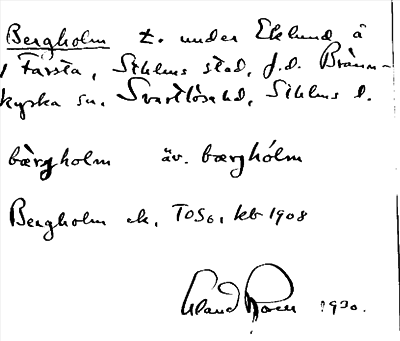 Bergholm t. under Eklund å
Farsta, Sthlms stad, f.d. Bränn-
kyrka sn. Svartlösa hd, Sthlms l.
bærgholm äv. bærghólm
Bergholm ek. TOSo, kb 1908
1930.